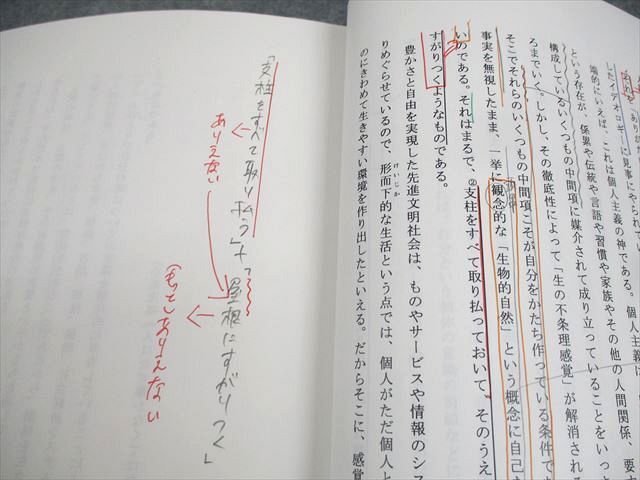 した イデオロギーに見事にやられて
端的にいえば、これは個人主義の神である。個人主義
という存在が、係累や伝統や言語や習慣や家族やその他の人間関係、要す
構成しているいくつもの中間項に媒介されて成り立っていることをいっ
ろまでいく。しかし、その徹底性によって「生の不条理感覚」が解消される
そこでそれらのいくつもの中間項こそが自分をかたち作っている条件で
事実を無視したまま、一挙に観念的な「生物的自然」という概念に自己
いのである。それはまるで、②支柱をすべて取り払っておいて、そのうえ
すがりつくようなものである。
豊かさと自由を実現した先進文明社会は、ものやサービスや情報のシス
りめぐらせているので、形而下的な生活という点では、個人がただ個人と
けいじか
のにきわめて生きやすい環境を作り出したといえる。だからそこに、感覚
「支柱をすべて取り払う」+「屋根にすがりつく」
ありえない
もっとありえない